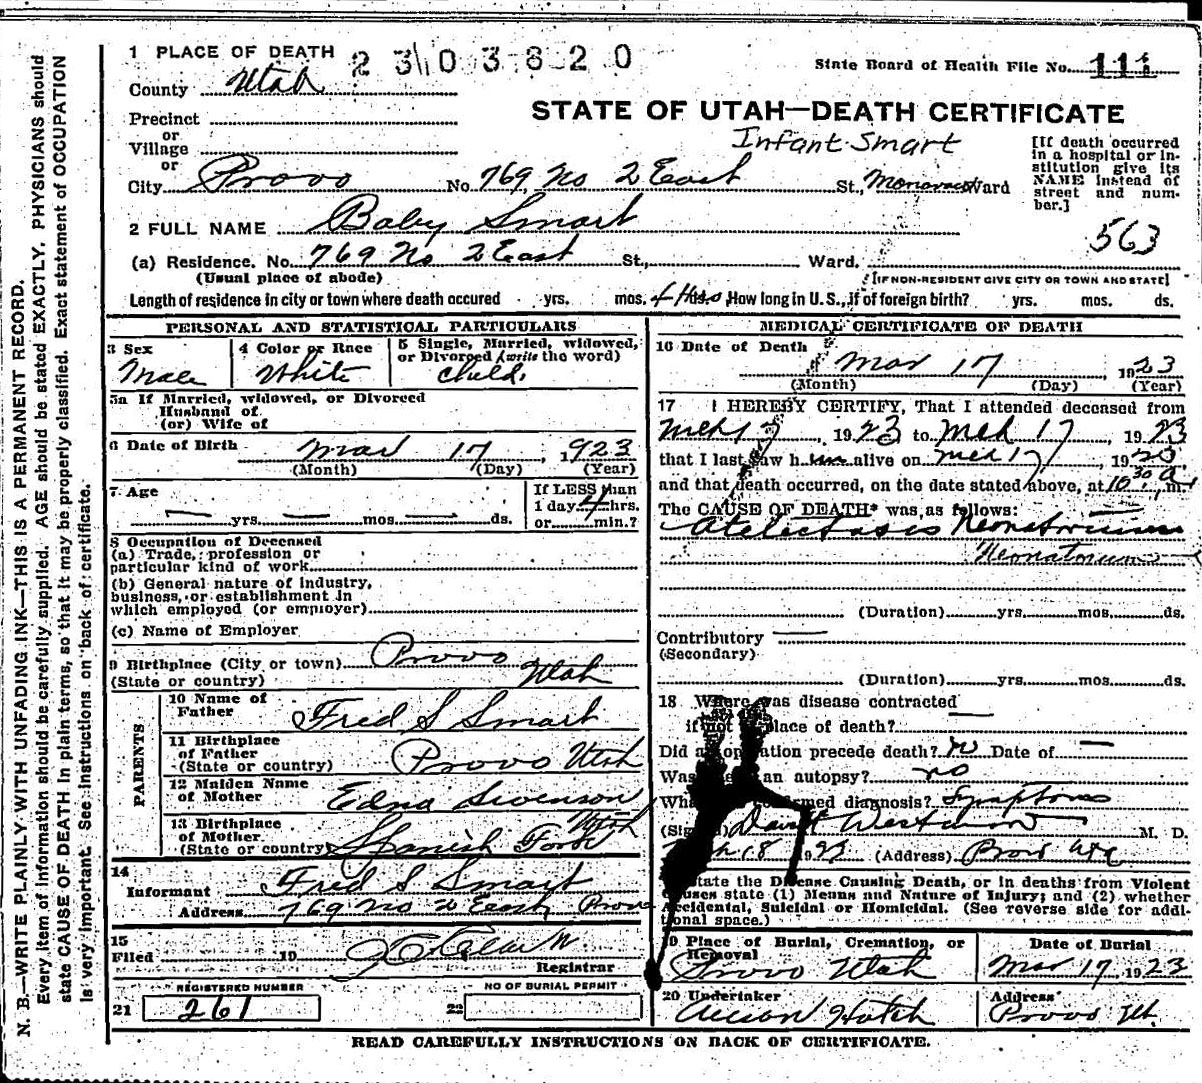 N. B.—WRITE PLAINLY WITH UNFADING INK—THIS IS A PERMANENT RECORD.
Every item of information should be carefully supplied. AGE should be stated EXACTLY. PHYSICIANS should
state CAUSE OF DEATH in plain terms, so that it may be properly classified. Exact statement of OCCUPATION
is very important. See instructions on back of certificate.
1 PLACE OF DEATH 2303820
State Board of Health File No. 111
County Utah
STATE OF UTAH—DEATH CERTIFICATE
Precinct
or
Village
or
Infant Smart
[If death occurred
in a hospital or in-
stitution give its
NAME instead of
street and num-
ber.]
City Provo No. 769 No 2 East St., Ward
2 FULL NAME Baby Smart
563
(a) Residence. No. 769 No 2 East St., Ward.
(Usual place of abode) [IF NON-RESIDENT GIVE CITY OR TOWN AND STATE]
Length of residence in city or town where death occured yrs. mos. 4 How long in U. S., if of foreign birth? yrs. mos. ds.
PERSONAL AND STATISTICAL PARTICULARS
3 Sex
Male
4 Color or Race
White
5 Single, Married, widowed,
or Divorced (write the word)
Child
5a If Married, widowed, or Divorced
Husband of
(or) Wife of
6 Date of Birth Mar 17, 1923
(Month) (Day) (Year)
7 Age
— yrs — mos — ds.
If LESS than
1 day 4 hrs.
or min.?
8 Occupation of Deceased
(a) Trade, profession or
particular kind of work
(b) General nature of industry,
business, or establishment in
which employed (or employer)
(c) Name of Employer
9 Birthplace (City or town) Provo
(State or country) Utah
PARENTS
10 Name of
Father Fred S Smart
11 Birthplace
of Father Provo Utah
(State or country)
12 Maiden Name
of Mother Edna Swenson
13 Birthplace
of Mother Utah
(State or country) Spanish Fork
14
Informant Fred S Smart
Address 769 No 2 East Provo
15
Filed 19
Registrar
REGISTERED NUMBER
21 261
NO OF BURIAL PERMIT
22
MEDICAL CERTIFICATE OF DEATH
16 Date of Death Mar 17 1923
(Month) (Day) (Year)
17 I HEREBY CERTIFY, That I attended deceased from
Mch 17, 1923 to Mch 17, 1923
that I last saw h im alive on Mch 17, 19
and that death occurred, on the date stated above, at 10 30 a. m.
The CAUSE OF DEATH* was as follows:
Atelectasis Neonatorium
Neonatorum
(Duration) yrs. mos. ds.
Contributory —
(Secondary)
(Duration) yrs. mos. ds.
18 Where was disease contracted
if not place of death? —
Did an operation precede death? no Date of —
Was an autopsy? no
What confirmed diagnosis? Symptoms
(Signed) David Westwood M. D.
18 1923 (Address) Provo
State the Disease Causing Death, or in deaths from Violent
Causes state (1) Means and Nature of Injury; and (2) whether
Accidental, Suicidal or Homicidal. (See reverse side for addi-
tional space.)
19 Place of Burial, Cremation, or
Removal
Provo Utah
Date of Burial
Mar 17 1923
20 Undertaker
Hatch
Address
Provo Ut.
READ CAREFULLY INSTRUCTIONS ON BACK OF CERTIFICATE.